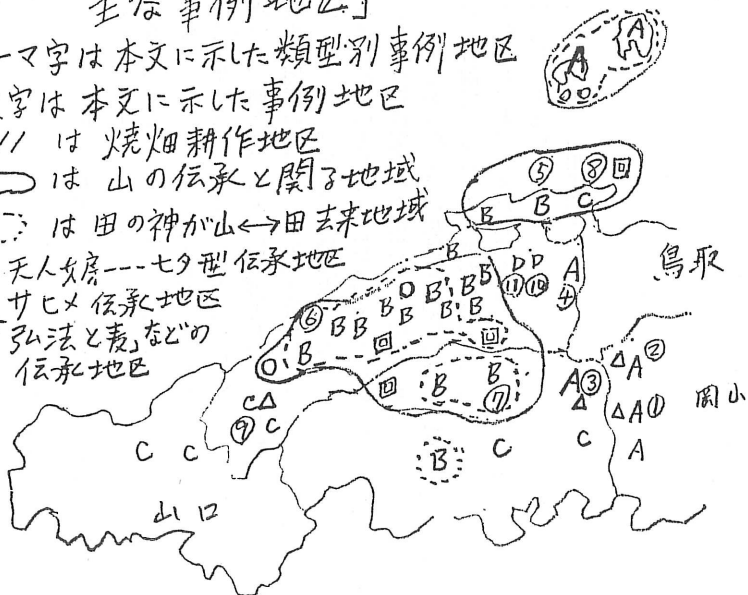 主な事例地区」
ーマ字は本文に示した類型別事例地区
字は本文に示した事例地区
// は 焼畑耕作地区
は 山の伝承と関る地域
は田の神が山↔田去来地域
天人女房---七夕型伝承地区
サヒメ伝承地区
弘法と麦」などの
伝承地区
A
A
⑤ ⑧ 回
B B C
B
鳥取
D D A
⑪ ⑩ ④
B B B
B B
⑥ B B B
B 回 回
回 B B
⑦
A ③
△
△ A ②
△ A ①
岡山
A
C △
⑨ C
C C
B
C
C
山口